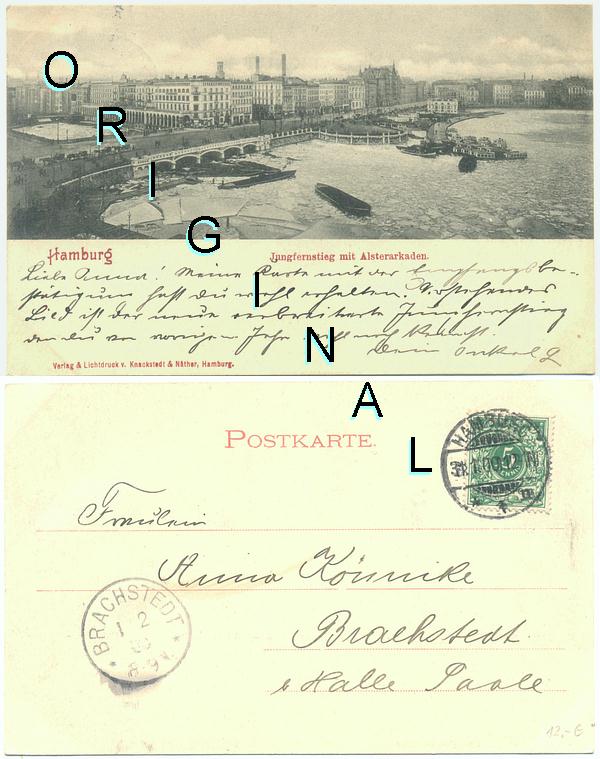 ORIGINAL
Hamburg
Jungfernstieg mit Alsterarkaden.
Liebe Anna! Meine Karte mit der Empfangsbe-
stätigung hast du wohl erhalten. Vorstehendes
Bild ist der neue verbreiterte Jungfernstieg
den du von vorigem Jahr nicht
Dein Onkel
Verlag & Lichtdruck v. Knackstedt & Näther, Hamburg.
POSTKARTE.
HAMBURG
31.1.00.12 N
1
5
Fräulein
Anna Könnike
Brachstedt.
Halle Saale
BRACHSTEDT
1 2
00
8-9 V.
12,- €